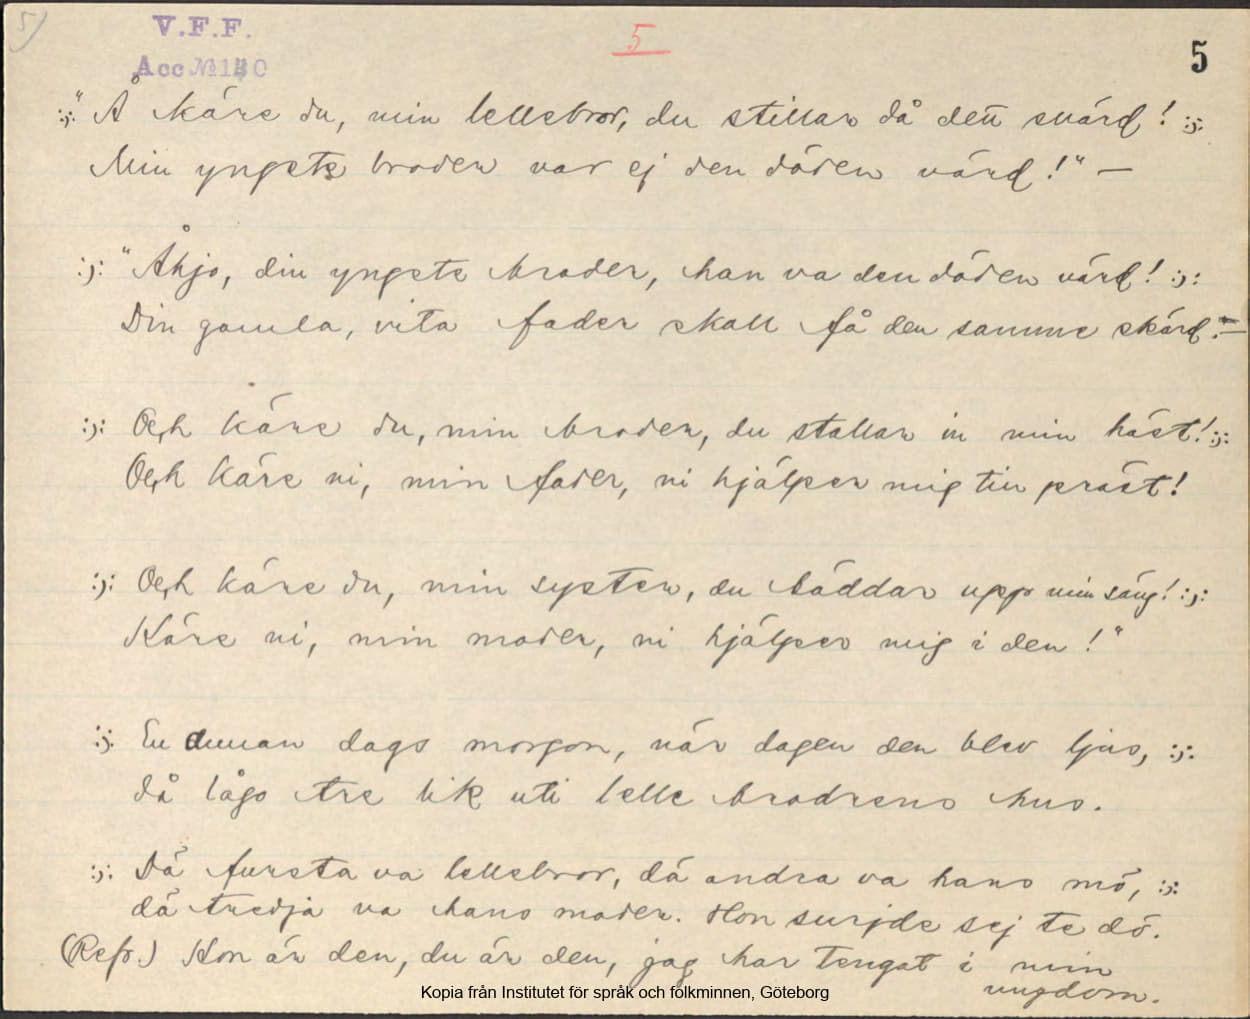 5)
V.F.F.
Acc №130
5
5
:;: "Å käre du, min lellebror, du stillar då dett svärd! :;:
Min yngste broder var ej den döden värd!" —
:;: "Åhjo, din yngste broder, han va den döden värd! :;:
Din gamla, vita fader skall få den samme skärd." —
:;: Och käre du, min broder, du stallar in min häst! :;:
Och käre ni, min fader, ni hjälper mig till präst!
:;: Och käre du, min syster, du bäddar upp min säng! :;:
Käre ni, min moder, ni hjälper mig i den!"
:;: En annan dags morgon, när dagen den blev ljus, :;:
då lågo tre lik uti lelle brodrens hus.
:;: Dä fursta va lellebror, dä andra va hans mö, :;:
dä tredja va hans moder. Hon surjde sej te dö.
(Refr.) Hon är den, du är den, jag har tengat i min
ungdom.
Kopia från Institutet för språk och folkminnen, Göteborg